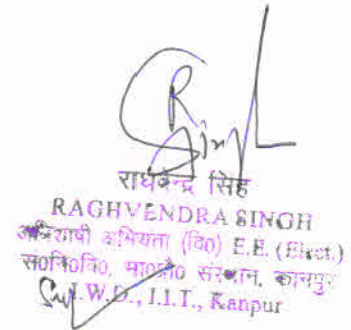 राघवेन्द्र सिंह
RAGHVENDRA SINGH
अधिशाषी अभियन्ता (वि0) E.E. (Elect.)
स0नि0वि0, भा0प्रौ0 संस्थान, कानपुर
I.W.D., I.I.T., Kanpur